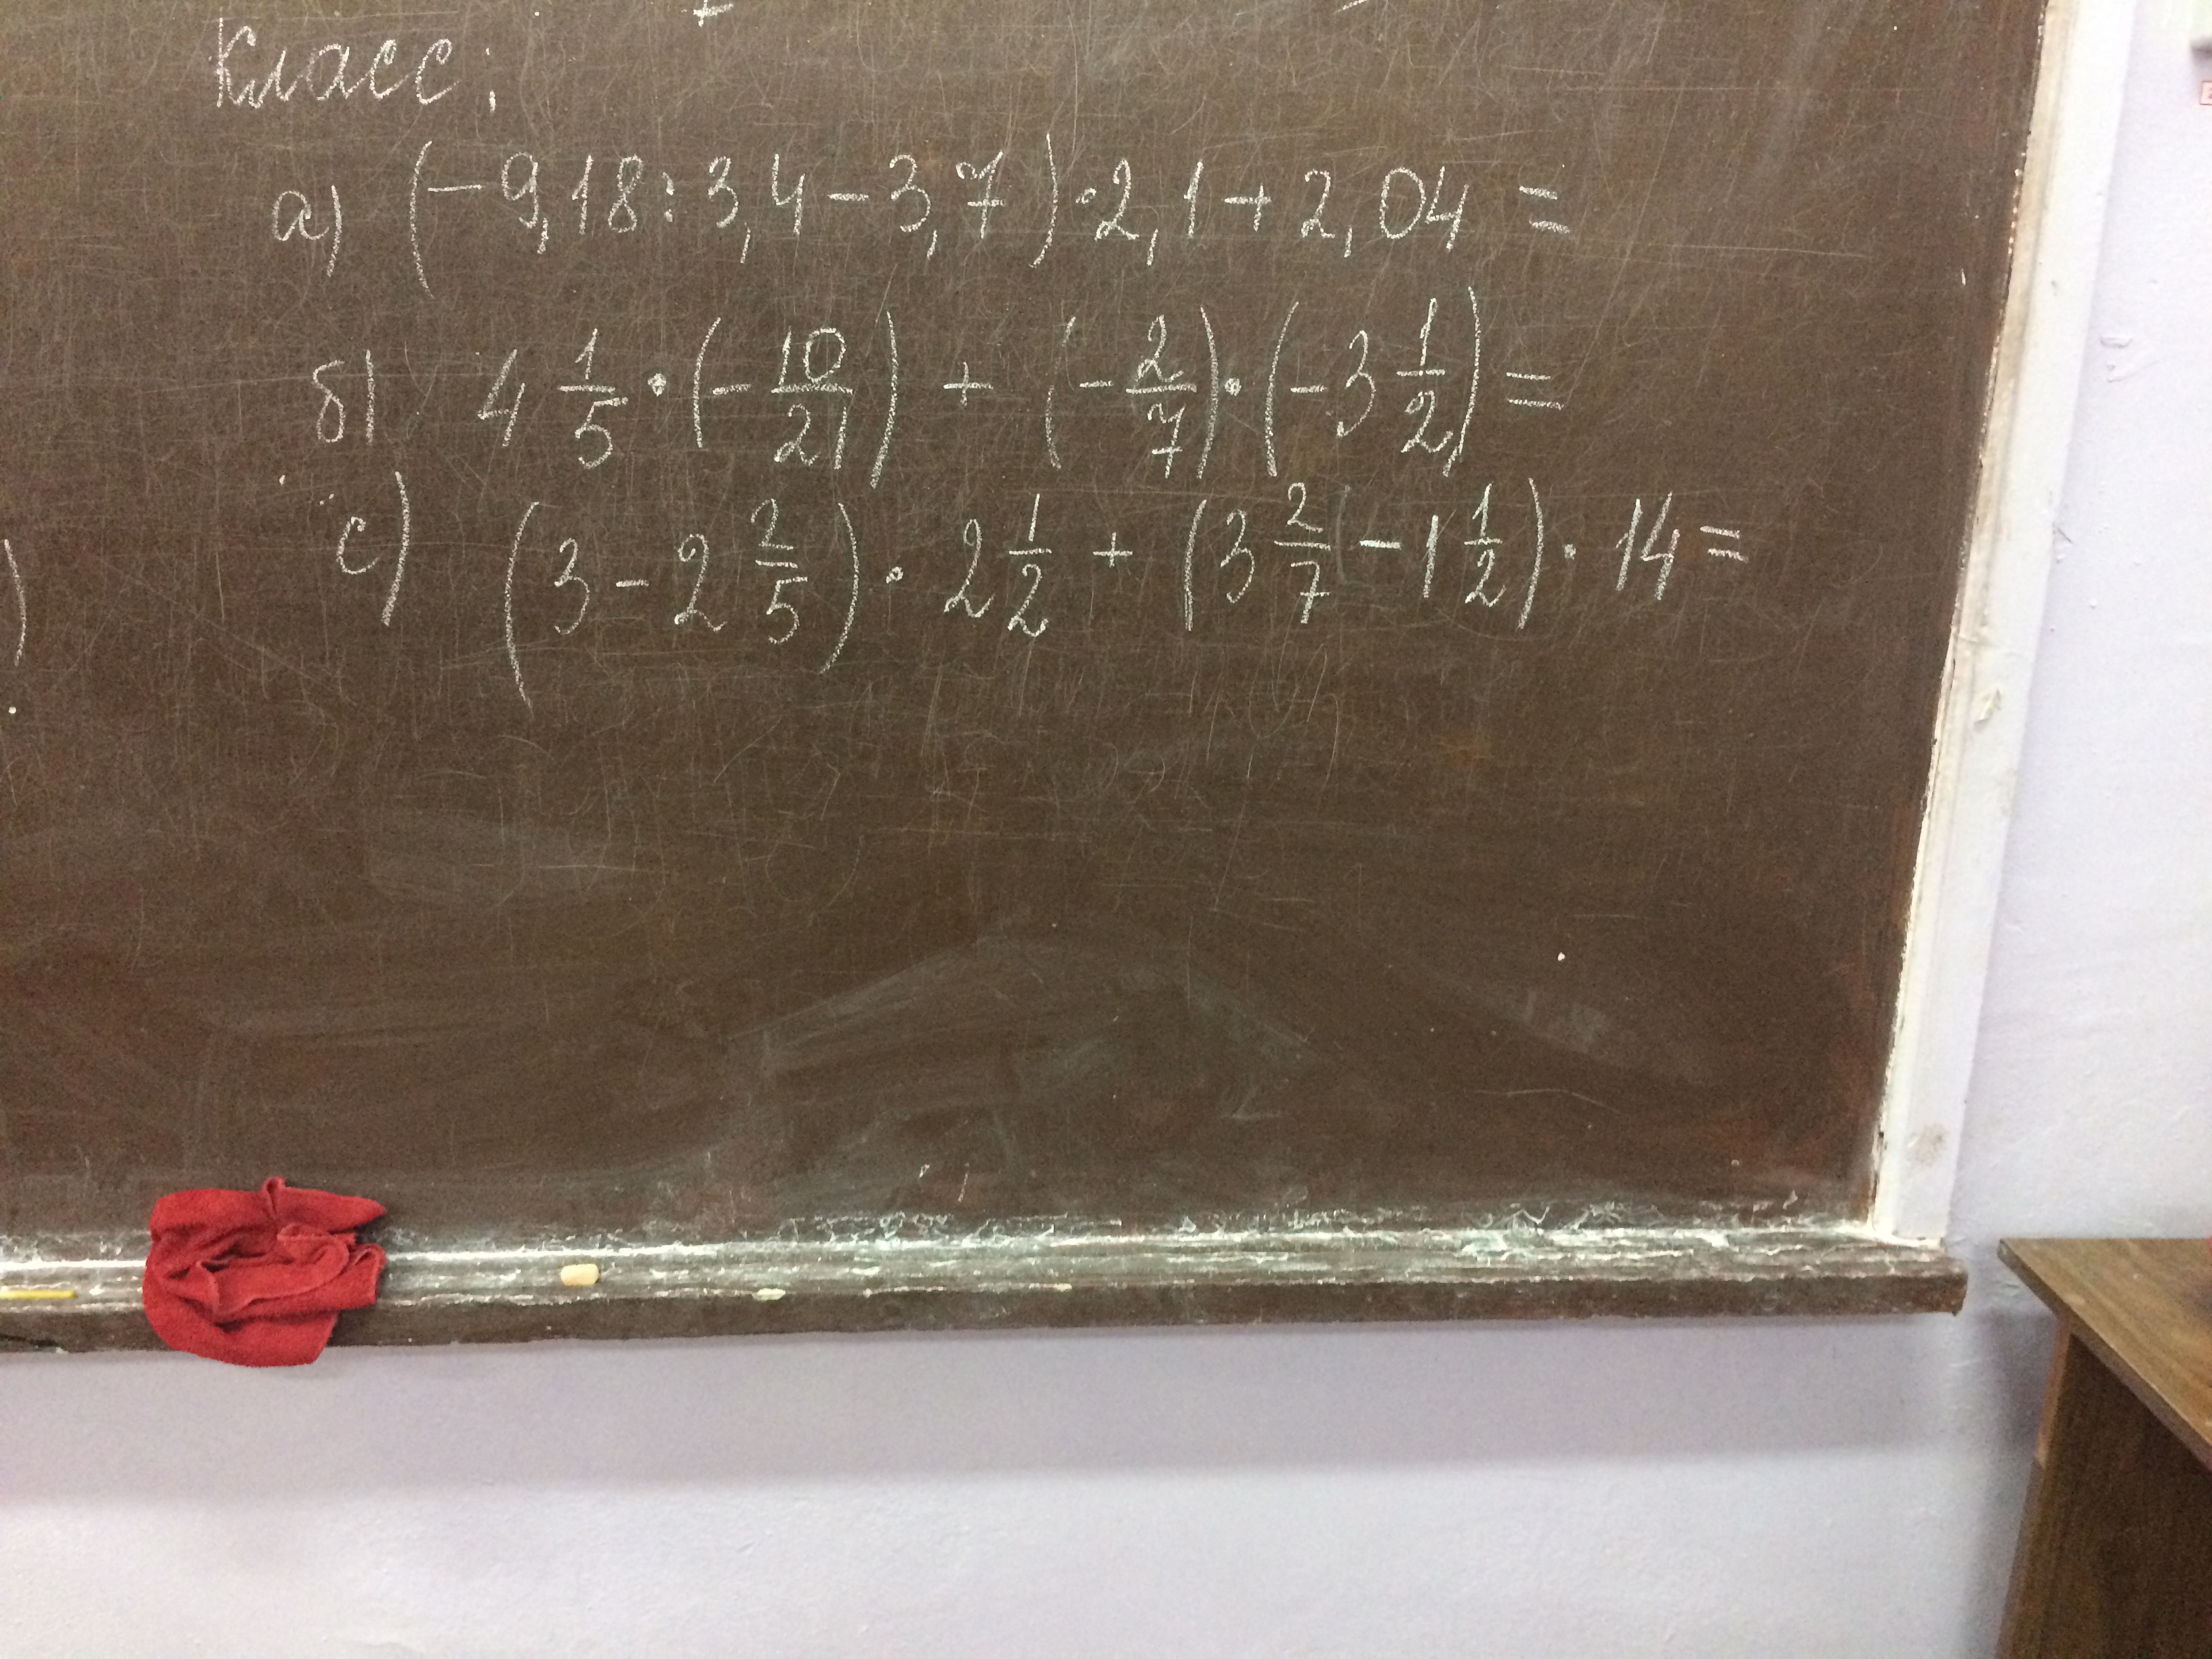 Класс:
а) (-9,18:3,4-3,7)·2,1+2,04=
б) 4 1/5 · (-10/21) + (-2/7)·(-3 1/2)=
с) (3-2 2/5)·2 1/2 + (3 2/7 - 1 1/2)·14=